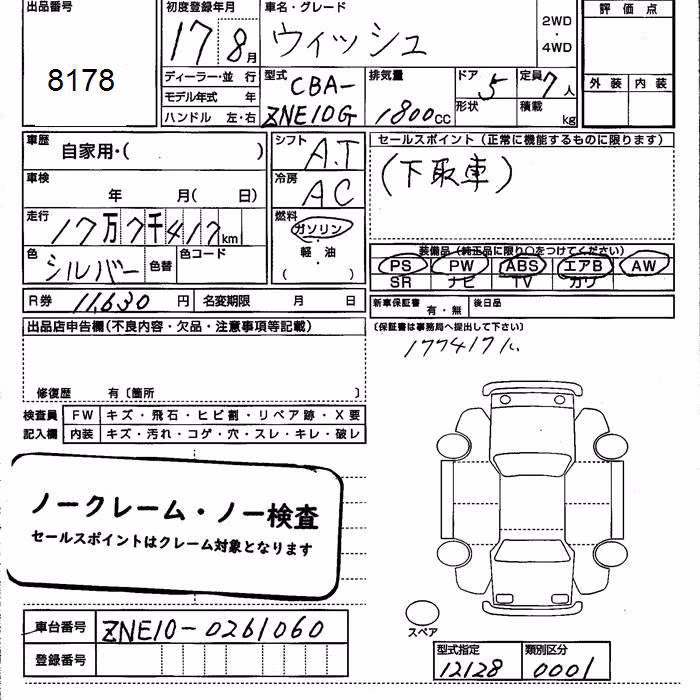 出品番号
8178
初度登録年月
17 8月
車名・グレード
ウィッシュ
2WD
・
4WD
評価点
外装 内装
ディーラー・並行
モデル年式 年
ハンドル 左・右
型式
CBA-
ZNE10G
排気量
1800cc
ドア 5
形状
定員 7人
積載 kg
車歴 自家用・( )
車検 年 月( 日)
走行 17万7千417km
色 シルバー 色替 色コード
R券 11,630円 名変期限 月 日
シフト AT
冷房 AC
燃料
ガソリン
軽・油
( )
セールスポイント(正常に機能するものに限ります)
(下取車)
装備品(純正品に限り○をつけてください)
PS PW ABS エアB AW
SR ナビ TV カワ
新車保証書 有・無 後日品
(保証書は事務局へ提出して下さい)
177417k
出品店申告欄(不良内容・欠品・注意事項等記載)
修復歴 有〔箇所 〕
検査員 FW キズ・飛石・ヒビ割・リペア跡・X要
記入欄 内装 キズ・汚れ・コゲ・穴・スレ・キレ・破レ
ノークレーム・ノー検査
セールスポイントはクレーム対象となります
スペア
車台番号 ZNE10-0261060
登録番号
型式指定 類別区分
12128 0001